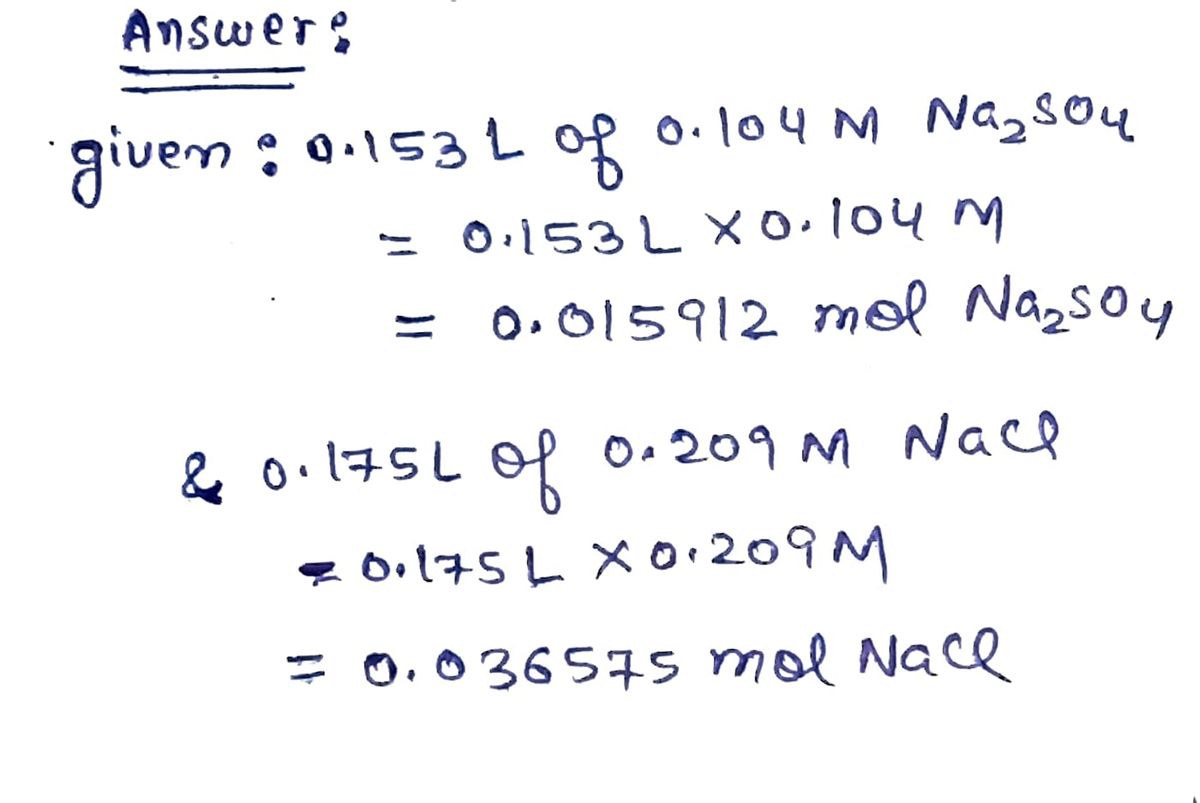 Answer:
given : 0.153 L of 0.104 M Na₂SO₄
= 0.153 L × 0.104 M
= 0.015912 mol Na₂SO₄
& 0.175 L of 0.209 M NaCl
= 0.175 L × 0.209 M
= 0.036575 mol NaCl